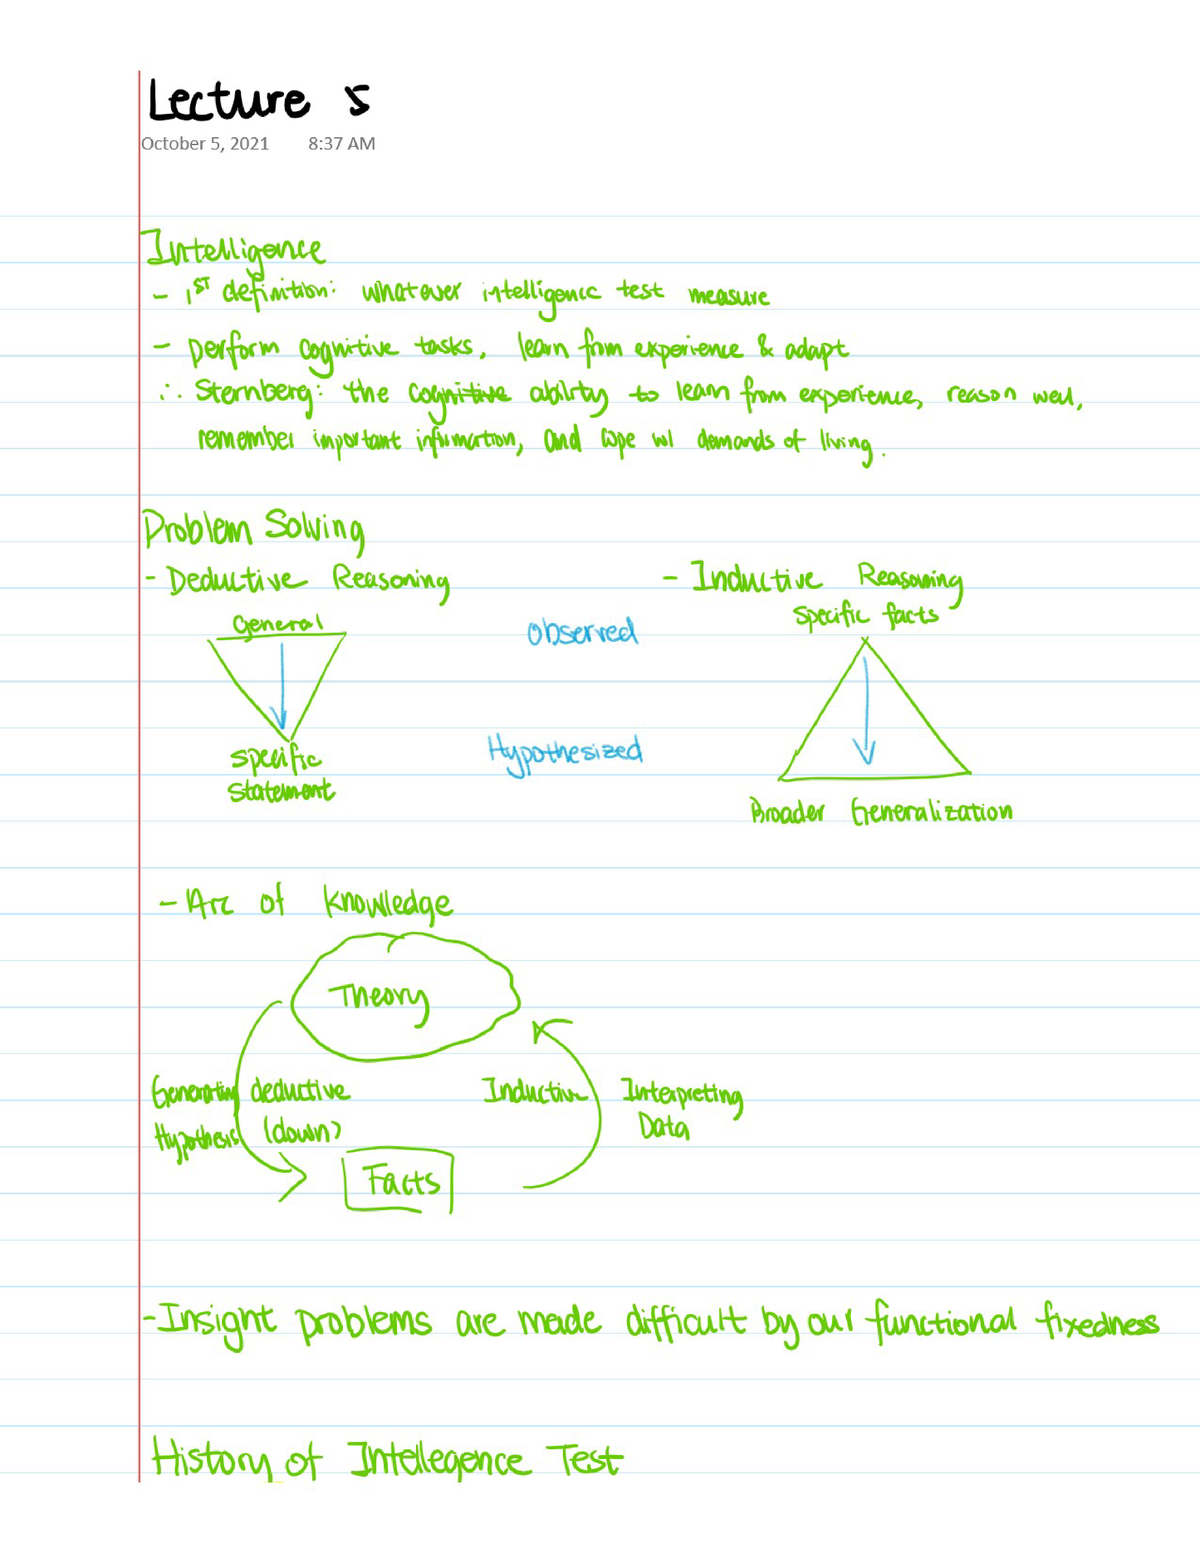 Lecture 5
October 5, 2021 8:37 AM
Intelligence
- 1ST definition: whatever intelligence test measure
- perform cognitive tasks, learn from experience & adapt
∴ Sternberg: the cognitive ability to learn from experience, reason well,
remember important information, and cope w/ demands of living.
Problem Solving
- Deductive Reasoning - Inductive Reasoning
General Observed Specific facts
Specific Hypothesized
Statement
Broader Generalization
- Arc of knowledge
Theory
Generating deductive Inductive Interpreting
Hypothesis (down) Data
Facts
- Insight problems are made difficult by our functional fixedness
History of Intellegence Test